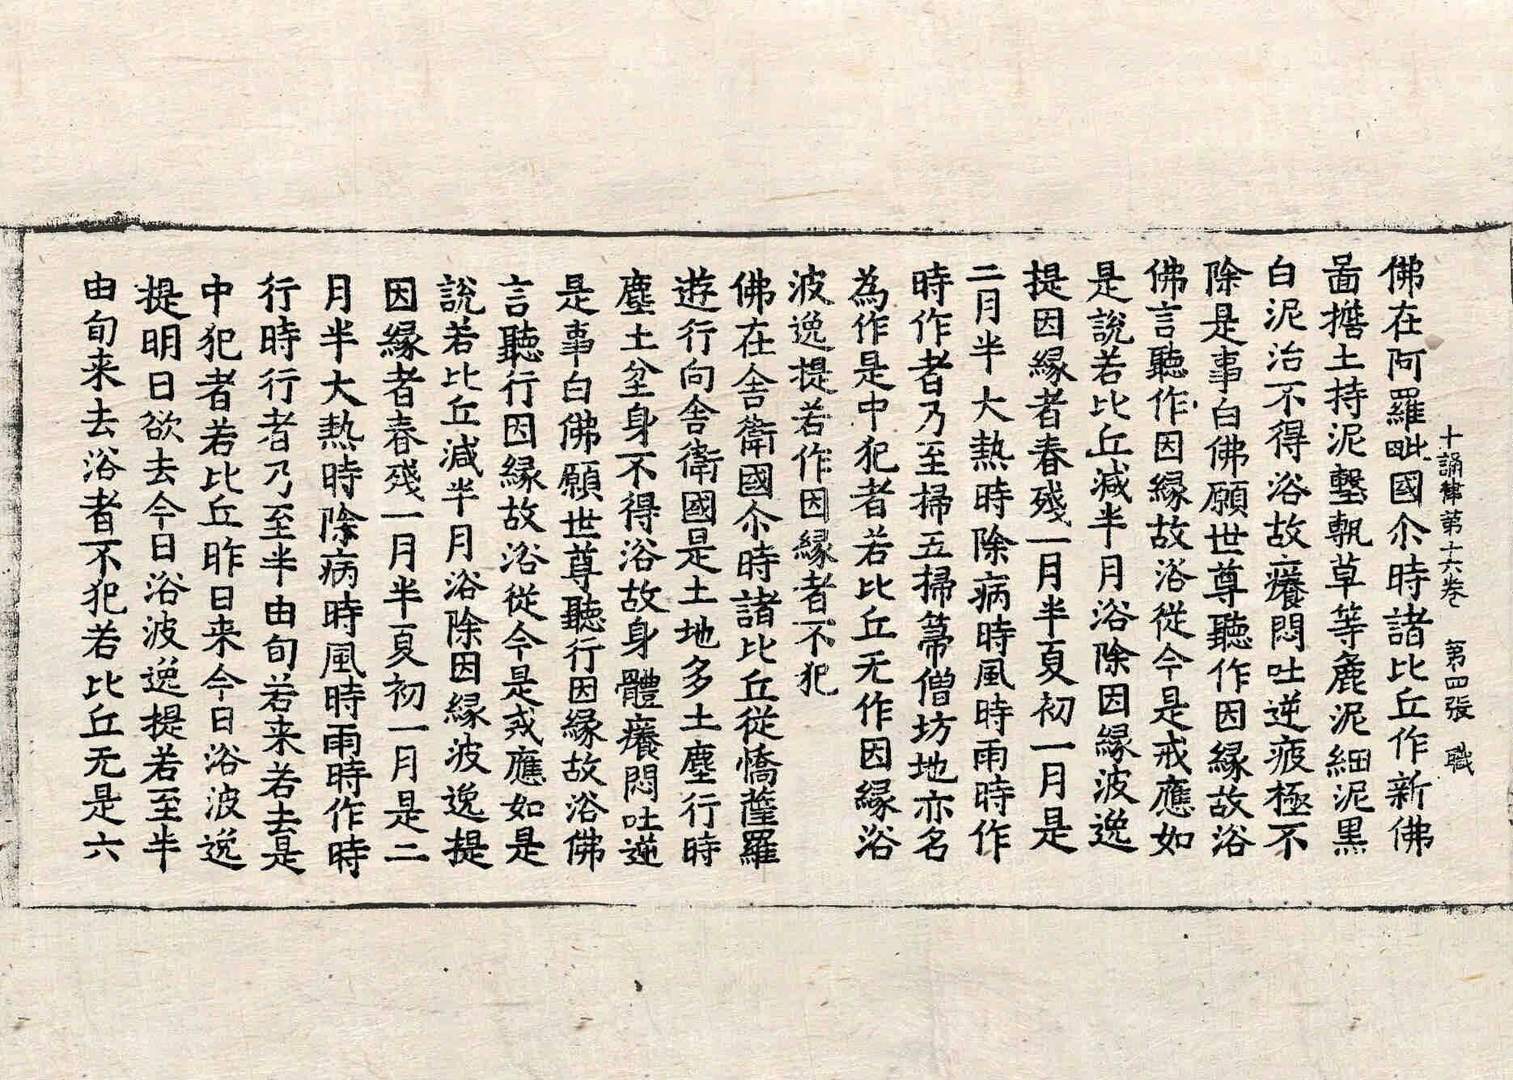 十誦律第十六卷　第四張　職
佛在阿羅毗國尒時諸比丘作新佛
啚擔土持泥墼甎草等麁泥細泥黑
白泥治不得浴故癢悶吐逆疲極不
除是事白佛願世尊聽作因緣故浴
佛言聽作因緣故浴從今是戒應如
是說若比丘減半月浴除因緣波逸
提因緣者春殘一月半夏初一月是
二月半大熱時除病時風時雨時作
時作者乃至掃五掃箒僧坊地亦名
為作是中犯者若比丘无作因緣浴
波逸提若作因緣者不犯
佛在舍衛國尒時諸比丘從憍薩羅
遊行向舍衛國是土地多土塵行時
塵土坌身不得浴故身體癢悶吐逆
是事白佛願世尊聽行因緣故浴佛
言聽行因緣故浴從今是戒應如是
說若比丘減半月浴除因緣波逸提
因緣者春殘一月半夏初一月是二
月半大熱時除病時風時雨時作時
行時行者乃至半由旬若来若去是
中犯者若比丘昨日来今日浴波逸
提明日欲去今日浴波逸提若至半
由旬来去浴者不犯若比丘无是六